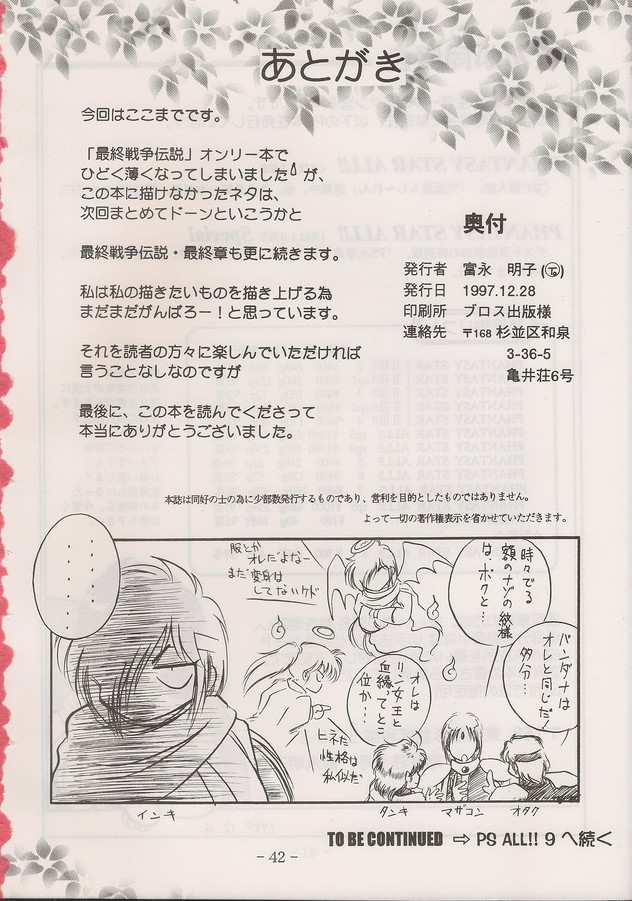 あとがき
今回はここまでです。
「最終戦争伝説」オンリー本で
ひどく薄くなってしまいましたが、
この本に描けなかったネタは、
次回まとめてドーンといこうかと
最終戦争伝説・最終章も更に続きます。
私は私の描きたいものを描き上げる為
まだまだがんばろー！と思っています。
それを読者の方々に楽しんでいただければ
言うことなしなのですが
最後に、この本を読んでくださって
本当にありがとうございました。
奥付
発行者 富永 明子
発行日 1997.12.28
印刷所 ブロス出版様
連絡先 〒168 杉並区和泉
3-36-5
亀井荘6号
本誌は同好の士の為に少部数発行するものであり、営利を目的としたものではありません。
よって一切の著作権表示を省かせていただきます。
時々でる
額のナゾの紋様
は、ボクと…
バンダナは
オレと同じだ！
多分…
オレは
リン女王と
血縁ってとこ
位か…
服とか
オレだよなー
まだ変身は
してないケド
ヒネた
性格は
私似だ
・・・・・・・
インキ
タンキ
マザコン
オタク
TO BE CONTINUED ⇨ PS ALL!! 9 へ続く
- 42 -